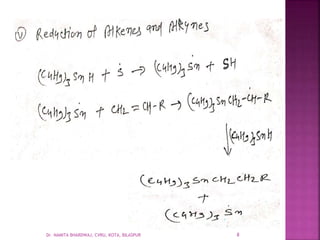 (v) Reduction of Alkenes and Alkynes
(C4H9)3SnH + Ṡ → (C4H9)3Ṡn + SH
(C4H9)3Ṡn + CH2=CH-R → (C4H9)3SnCH2-ĊH-R
(C4H9)3SnH
(C4H9)3SnCH2CH2R
+
(C4H9)3Ṡn
Dr. MAMTA BHARDWAJ, CVRU, KOTA, BILASPUR 8